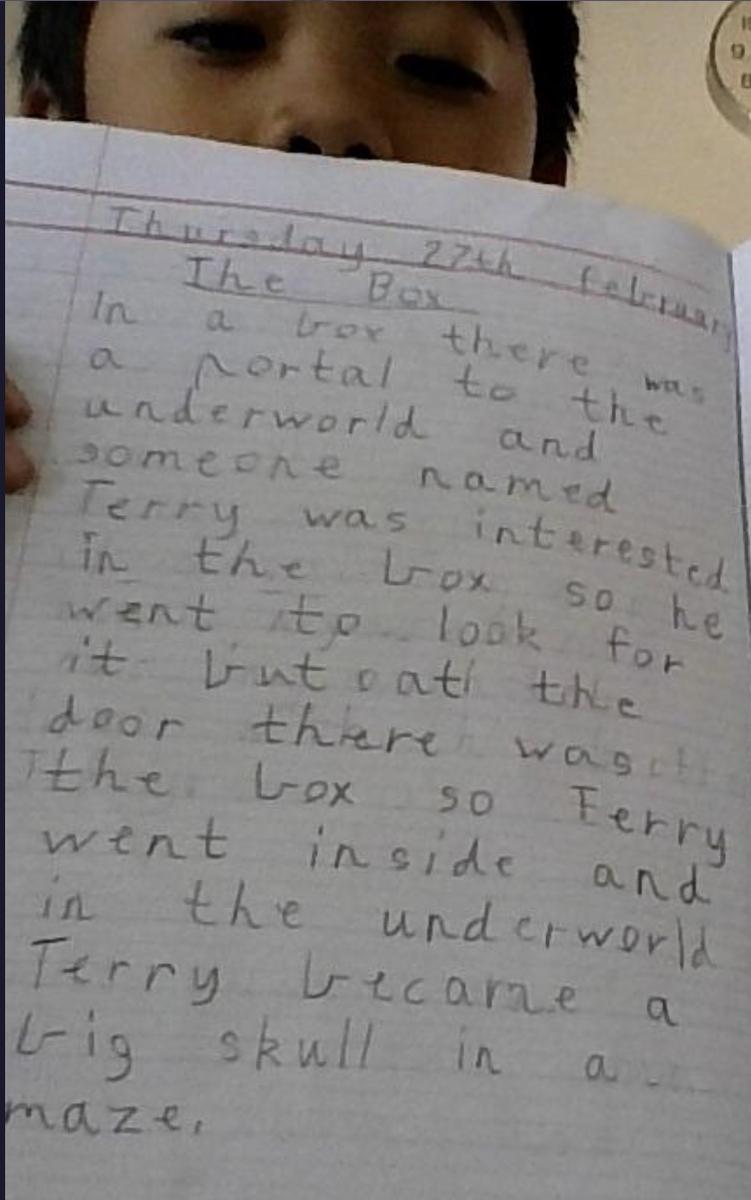 Thursday 27th february
The Box
In a box there was
a portal to the
underworld and
someone named
Terry was interested
in the box so he
went to look for
it but at the
door there was
the box so Terry
went inside and
in the underworld
Terry became a
big skull in a
maze.